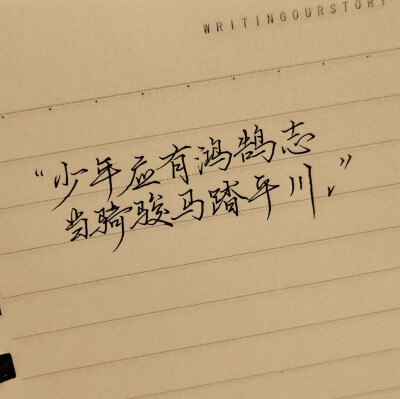 WRITINGOURSTORY
“少年应有鸿鹄志
当骑骏马踏平川。”